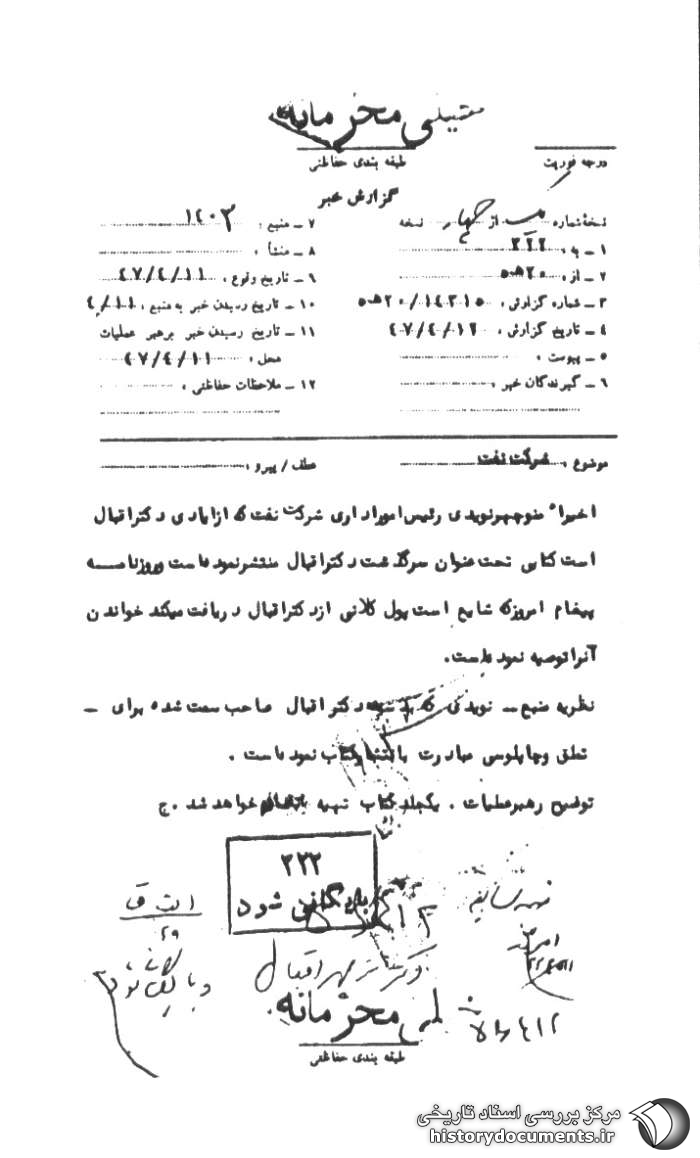 خیلی محرمانه
درجه فوریت
طبقه بندی حفاظتی
گزارش خبر
نسخه شماره یک از چهار نسخه
۱ ـ به : ۳۲۲
۲ ـ از : ۲۰ ﻫ ۵
۳ ـ شماره گزارش : ۱۴۳۱۵ / ۲۰ ﻫ ۵
۴ ـ تاریخ گزارش : ۴۷/۴/۱۲
۵ ـ پیوست :
۶ ـ گیرندگان خبر :
۷ ـ منبع : ۱۴۰۳
۸ ـ منشأ :
۹ ـ تاریخ وقوع : ۴۷/۴/۱۱
۱۰ ـ تاریخ رسیدن خبر به منبع : ۴/۱۱
۱۱ ـ تاریخ رسیدن خبر برهبر عملیات
محل : ۴۷/۴/۱۱
۱۲ ـ ملاحظات حفاظتی :
موضوع : شرکت نفت
عطف / پیرو :
اخیراً منوچهر نویدی رئیس امور اداری شرکت نفت که از ایادی دکتر اقبال
است کتابی تحت عنوان سرگذشت دکتر اقبال منتشر نموده است و روزنامه
پیغام امروز که شایع است پول کلانی از دکتر اقبال دریافت میکند خواندن
آنرا توصیه نموده است.
نظریه منبع ـ نویدی که دکتر اقبال صاحب سمت شده برای ـ
تملق و چاپلوسی مبادرت بانتشار کتاب نموده است .
توضیح رهبر عملیات . یکجلد کتاب تهیه خواهد شد . ج
۳۳۲
بایگانی شود
دکتر منوچهر اقبال
خیلی محرمانه
طبقه بندی حفاظتی
مرکز بررسی اسناد تاریخی
historydocuments.ir